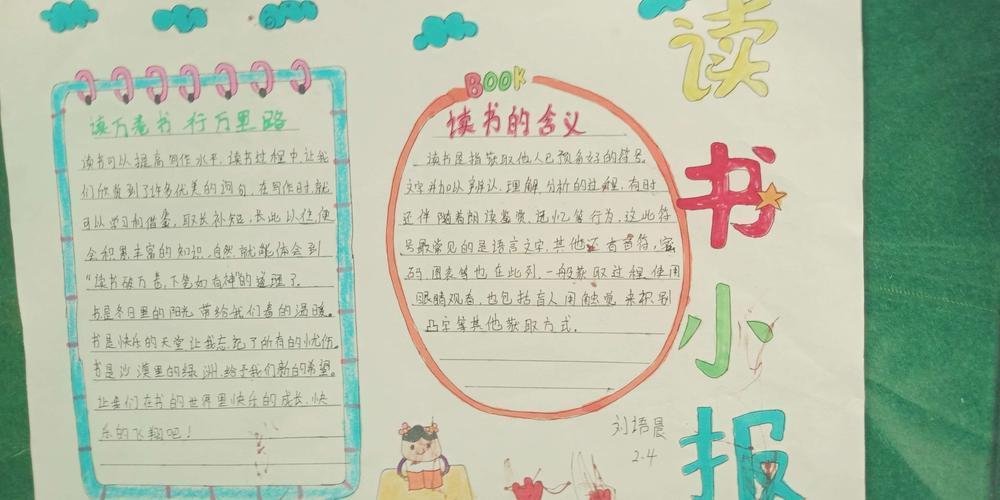 读万卷书 行万里路
读书可以提高写作水平,读书过程中,让我
们欣赏到了许多优美的词句,在写作时,就
可以学习和借鉴,取长补短,长此以往,便
会积累丰富的知识,自然就能体会到
“读书破万卷,下笔如有神”的道理了。
书是冬日里的阳光 带给我们春的温暖。
书是快乐的天堂 让我忘记了所有的忧伤。
书是沙漠里的绿洲,给予我们新的希望。
让我们在书的世界里快乐的成长,快
乐的飞翔吧!
BOOK
读书的含义
读书是指获取他人已预备好的符号,
文字并加以辨认、理解、分析的过程,有时
还伴随着朗读鉴赏、记忆等行为,这些符
号最常见的是语言文字,其他还有音符,密
码,图表等也在此列,一般获取过程,使用
眼睛观看,也包括盲人用触觉来识别
凸字等其他获取方式。
读书小报
刘培晨
2.4